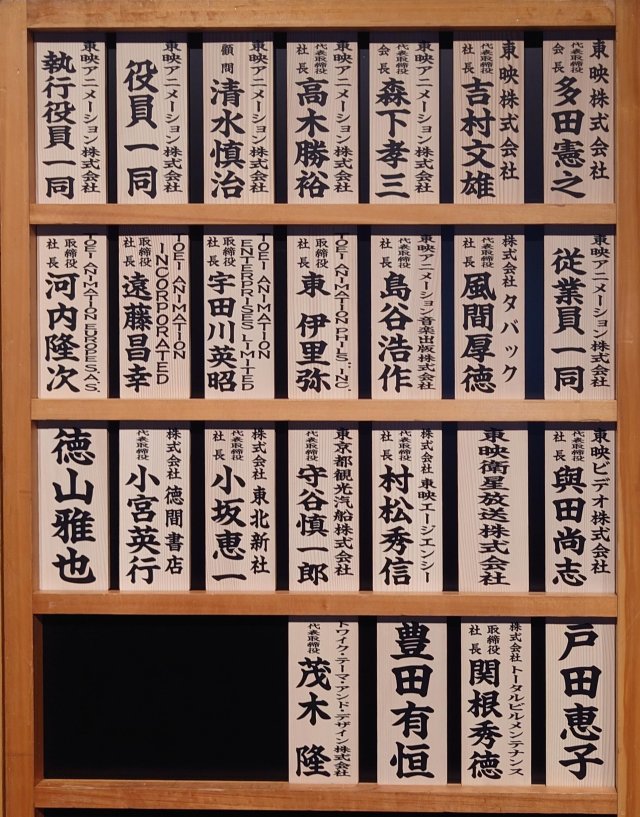 東映株式会社
代表取締役
会長
多田憲之
東映株式会社
代表取締役
社長
吉村文雄
東映アニメーション株式会社
代表取締役
会長
森下孝三
東映アニメーション株式会社
代表取締役
社長
高木勝裕
東映アニメーション株式会社
顧問
清水慎治
東映アニメーション株式会社
役員一同
東映アニメーション株式会社
執行役員一同
東映アニメーション株式会社
従業員一同
株式会社タバック
代表取締役
社長
風間厚徳
東映アニメーション音楽出版株式会社
代表取締役
社長
島谷浩作
TOEI ANIMATION PHILS., INC.
取締役
社長
東伊里弥
TOEI ANIMATION
ENTERPRISES LIMITED
取締役
社長
宇田川英昭
TOEI ANIMATION
INCORPORATED
取締役
社長
遠藤昌幸
TOEI ANIMATION EUROPE S.A.S.
取締役
社長
河内隆次
東映ビデオ株式会社
代表取締役
社長
與田尚志
東映衛星放送株式会社
株式会社 東映エージエンシー
代表取締役
社長
村松秀信
東京都観光汽船株式会社
代表取締役
守谷慎一郎
株式会社 東北新社
代表取締役
社長
小坂恵一
株式会社 徳間書店
代表取締役
小宮英行
徳山雅也
戸田恵子
株式会社 トータルビルメンテナンス
取締役
社長
関根秀徳
豊田有恒
トワイク・テーマ・アンド・デザイン株式会社
代表取締役
茂木隆